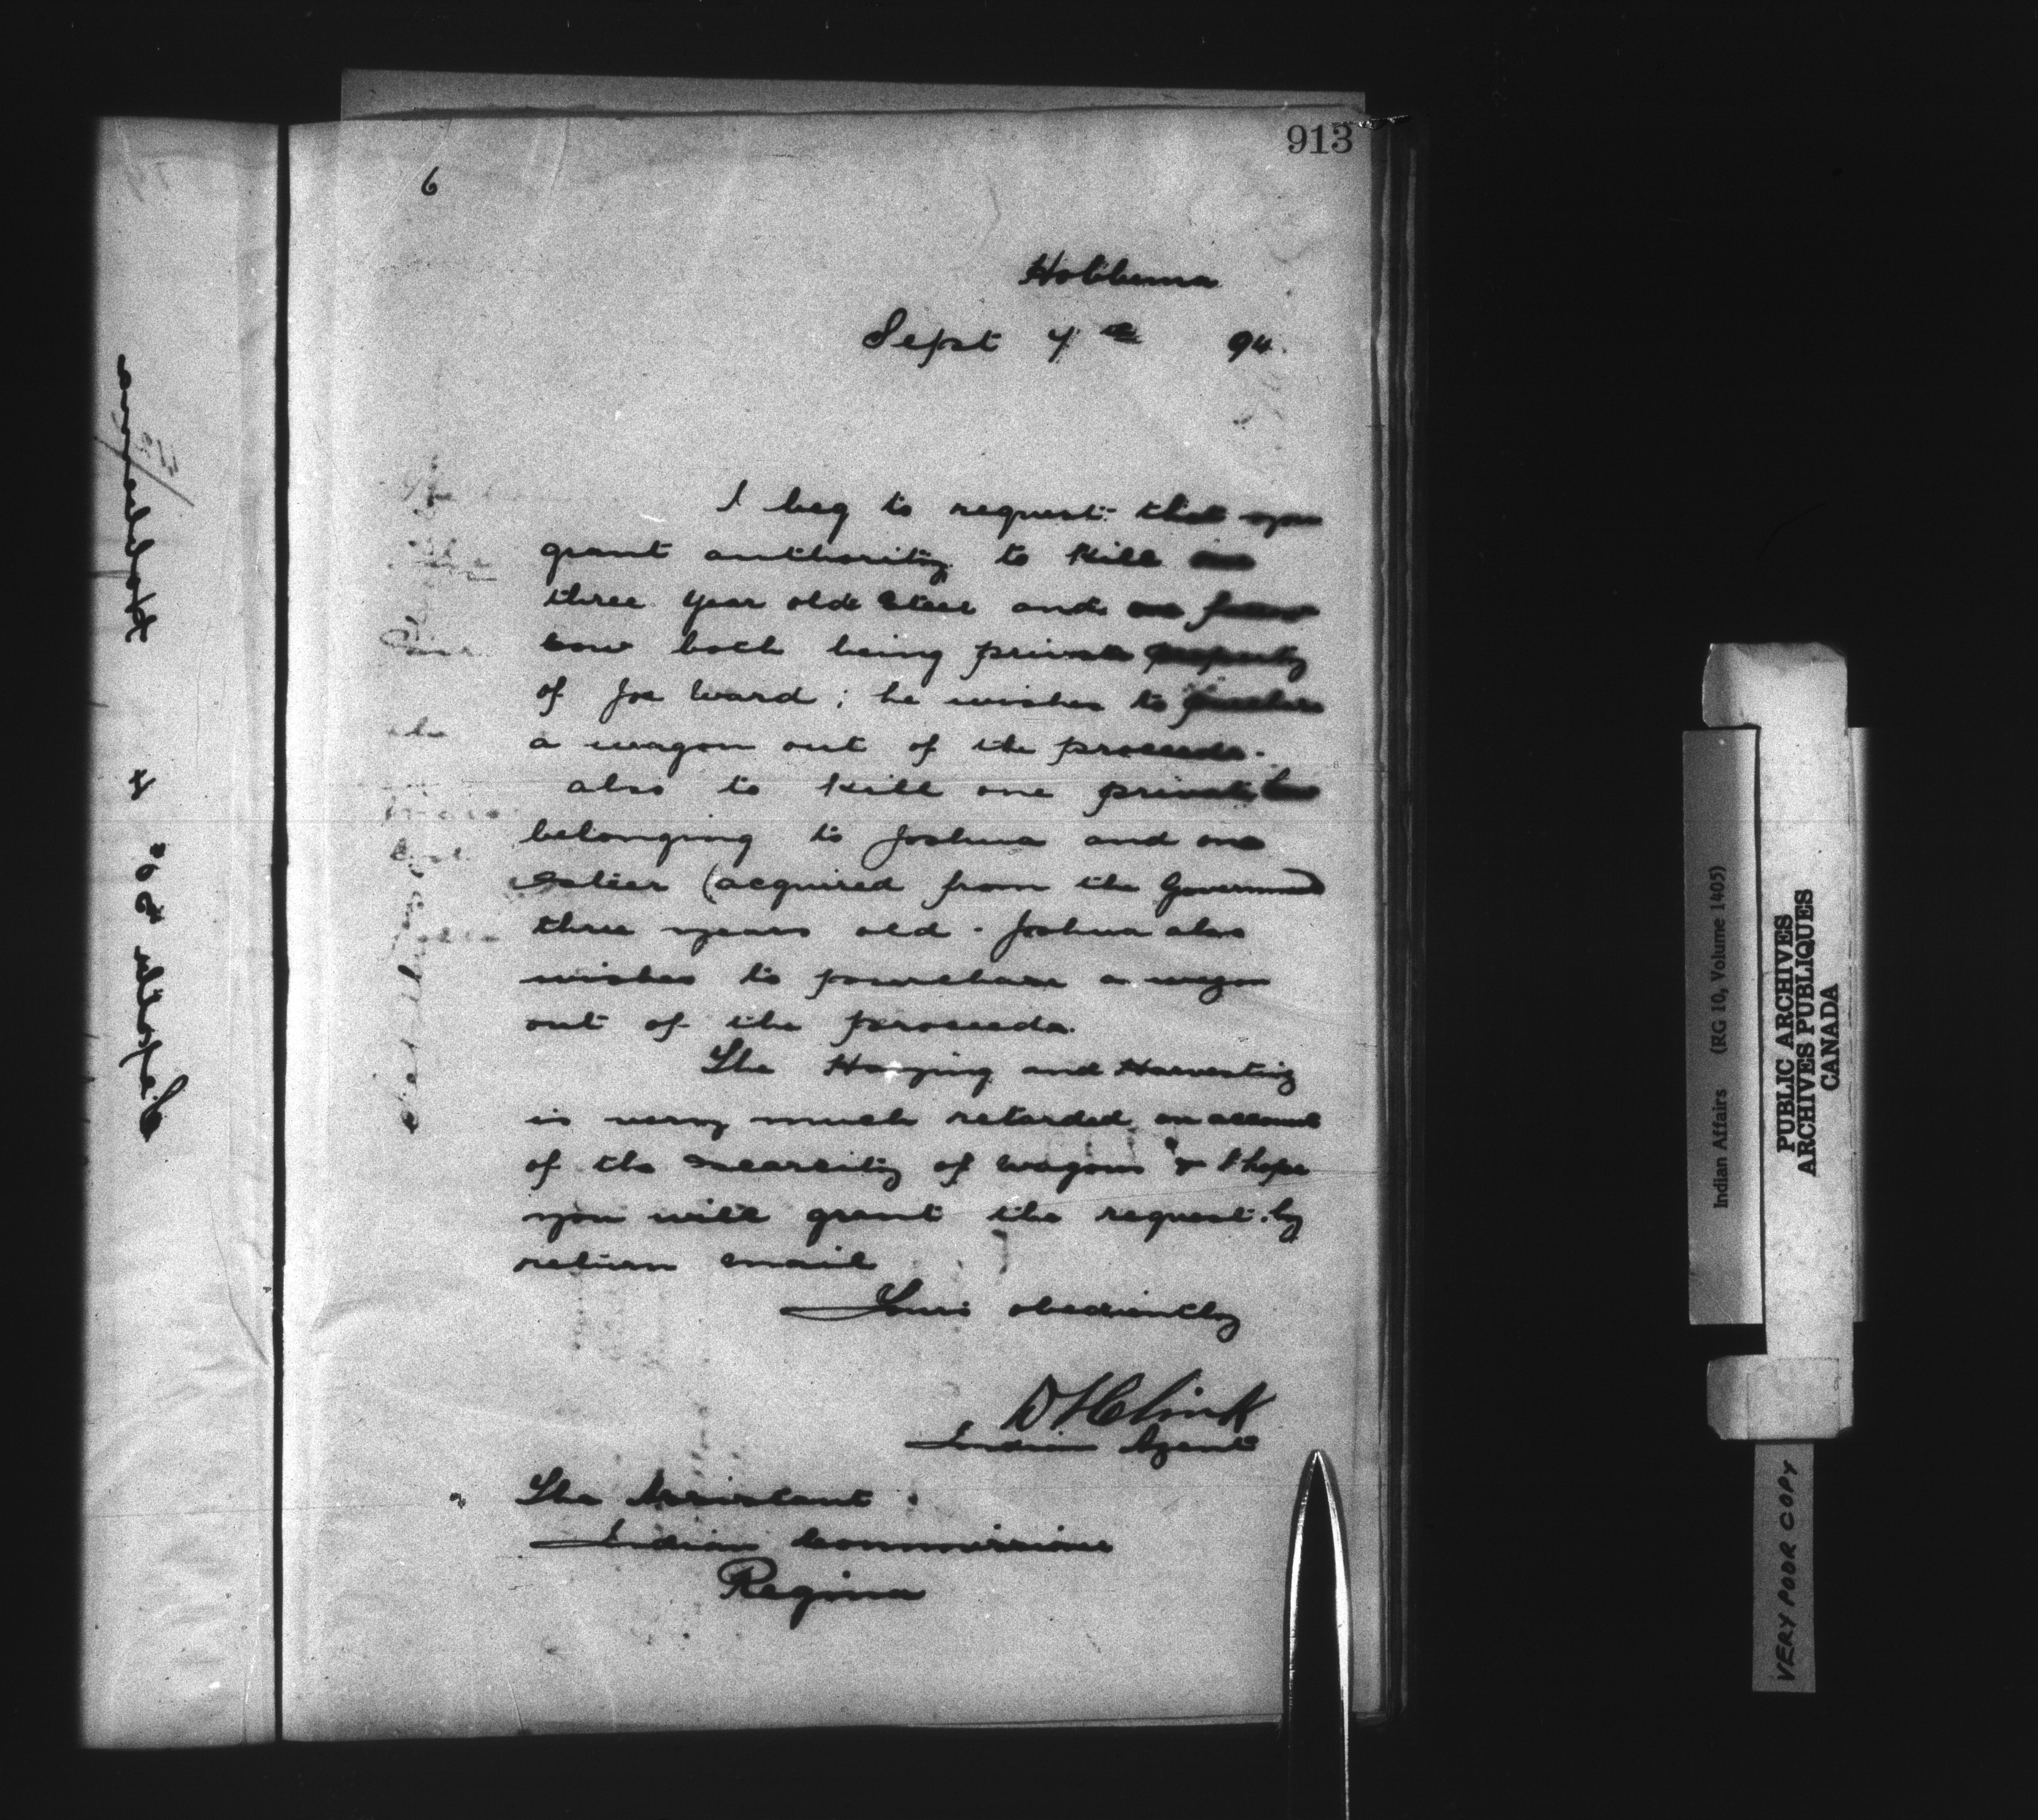 913
6
Hobbema
Sept 7th 94.
I beg to request that you
grant authority to kill one
three year old steer and one
cow both being private property
of Joe Ward; he wishes to purchase
a wagon out of the proceeds.
also to kill one private
belonging to Joshua and one
steer (acquired from the Government)
three years old. Joshua also
wishes to purchase a wagon
out of the proceeds.
The Haying and Harvesting
is very much retarded on account
of the scarcity of wagons & I hope
you will grant the request by
return mail
Yours obediently
D H Clink
Indian Agent
The Assistant
Indian Commissioner
Regina
Indian Affairs (RG 10, Volume 1405)
PUBLIC ARCHIVES
ARCHIVES PUBLIQUES
CANADA
VERY POOR COPY